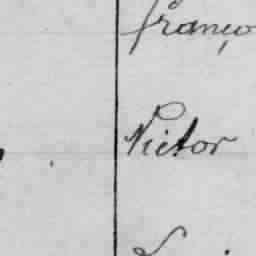 franço
Victor